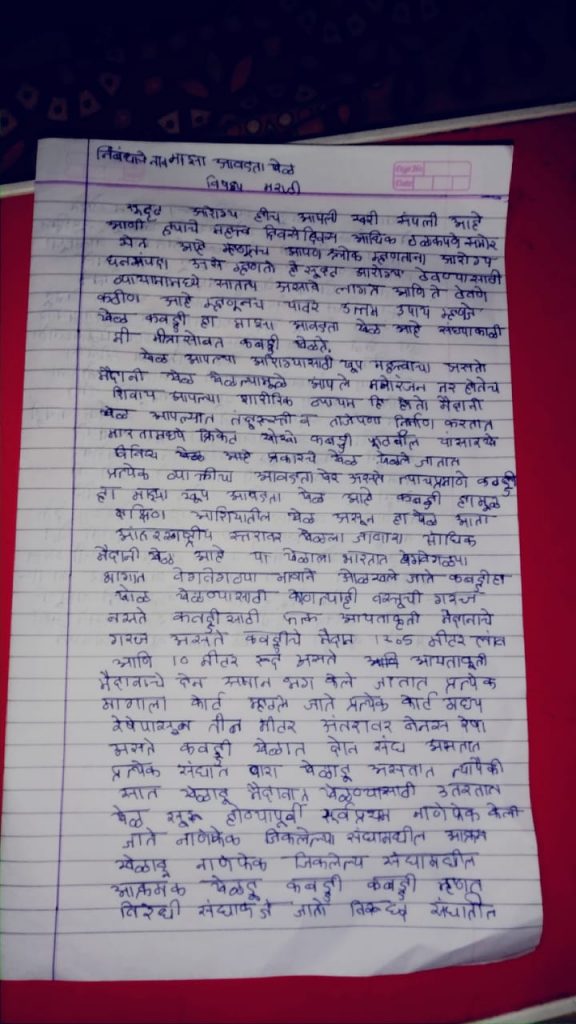 निबंधाचे नाव माझा आवडता खेळ
विषय मराठी
Page No.
Date
सुदृढ आरोग्य हीच आपली खरी संपत्ती आहे
आणी हयाचे महत्त्व दिवसेंदिवस आधिक ठळकपणे समोर
येत आहे म्हणूनच आपण श्लोक म्हणताना आरोग्य
धनसंपदा असे म्हणतो हे सुदृढ आरोग्य ठेवण्यासाठी
व्यायामामध्ये सातत्य असावे लागत आणि ते ठेवणे
कठीण आहे म्हणूनच यावर उत्तम उपाय म्हणजे
खेळ कबड्डी हा माझा आवडता खेळ आहे संध्याकाळी
मी मीत्रासोबत कबड्डी खेळते.
खेळ आपल्या आरोग्यासाठी खूप महत्वाचा असतो
मैदानी खेळ खेळल्यामुळे आपले मनोरंजन तर होतेच
शिवाय आपल्या शारीरिक व्यायाम हि होतो मैदानी
खेळ आपल्यात तंदुरुस्ती व ताजेपणा निर्माण करतात
भारतामध्ये क्रिकेट खोखो कबड्डी फुटबॉल यासारखे
विविध खेळ आहे प्रकारचे खेळ खेळले जातात
प्रत्येक व्यक्तीचा आवडता खेळ असतो त्याचप्रमाणे कबड्डी
हा माझा खूप आवडता खेळ आहे कबड्डी हा मुळ
दक्षिण आशियातील खेळ असून हा खेळ आता
आंतरराष्ट्रीय स्तरावर खेळला जाणारा सांघिक
मैदानी खेळ आहे या खेळाला भारतात वेगवेगळ्या
भागात वेगवेगळ्या नावाने ओळखले जाते कबड्डी हा
खेळ खेळण्यासाठी कोणत्याही वस्तूची गरज
नसते कबड्डीसाठी फक्त आयताकृती मैदानाचे
गरज असते कबड्डीचे मैदान 12.05 मीटर लांब
आणि 10 मीटर रूंद असते आयताकृती
मैदानाचे दोन समान भाग केले जातात प्रत्येक
भागाला कोर्ट म्हटले जाते प्रत्येक कोर्ट मध्य
रेषेपासून तीन मीटर अंतरावर बोनस रेषा
असते कबड्डी खेळात दोन संघ असतात
प्रत्येक संघात बारा खेळाडू असतात त्यापैकी
सात खेळाडू मैदानात खेळण्यासाठी उतरतात
खेळ सुरू होण्यापूर्वी सर्वप्रथम नाणेफेक केली
जाते नाणेफेक जिंकलेल्या संघामधील आक्रम
खेळाडू नाणेफेक जिंकलेल्य संघामधील
आक्रमक खेळाडू कबड्डी कबड्डी म्हणत
विरोधी संघाकडे जातो विरूध्द संघातील